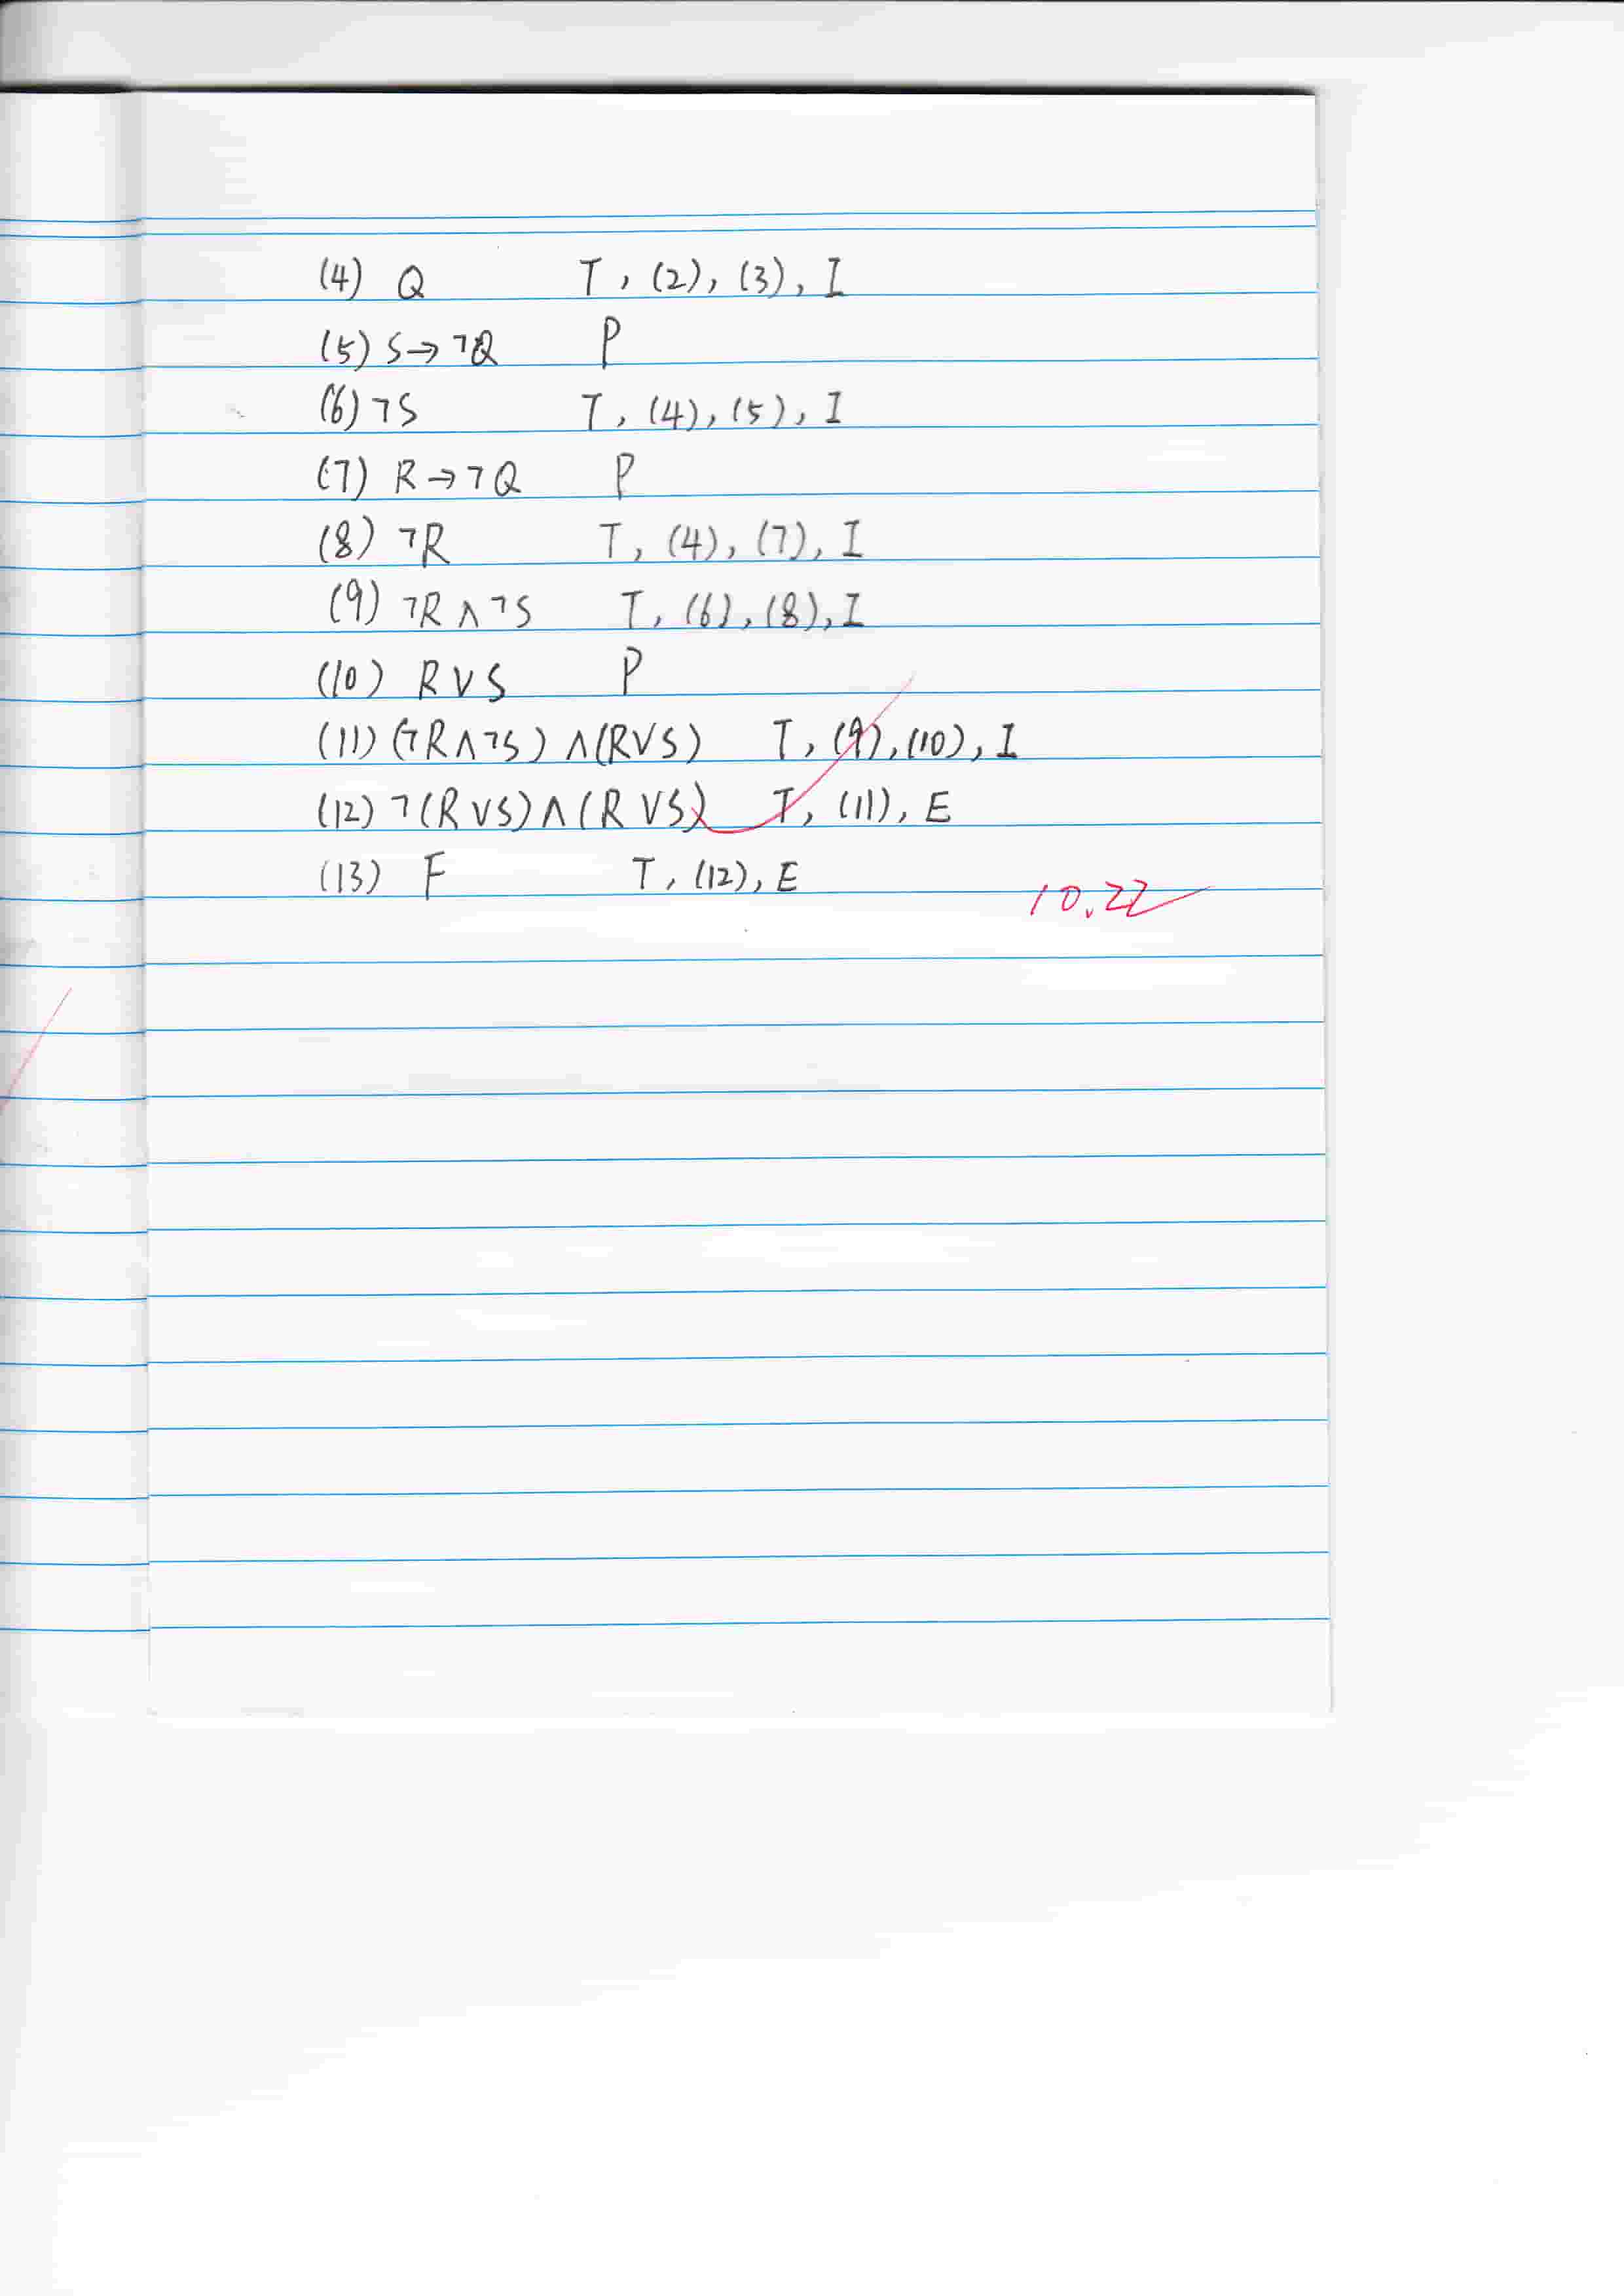 (4) Q T, (2), (3), I
(5) S→¬Q P
(6) ¬S T, (4), (5), I
(7) R→¬Q P
(8) ¬R T, (4), (7), I
(9) ¬R∧¬S T, (6), (8), I
(10) R∨S P
(11) (¬R∧¬S)∧(R∨S) T, (9), (10), I
(12) ¬(R∨S)∧(R∨S) T, (11), E
(13) F T, (12), E
10.22